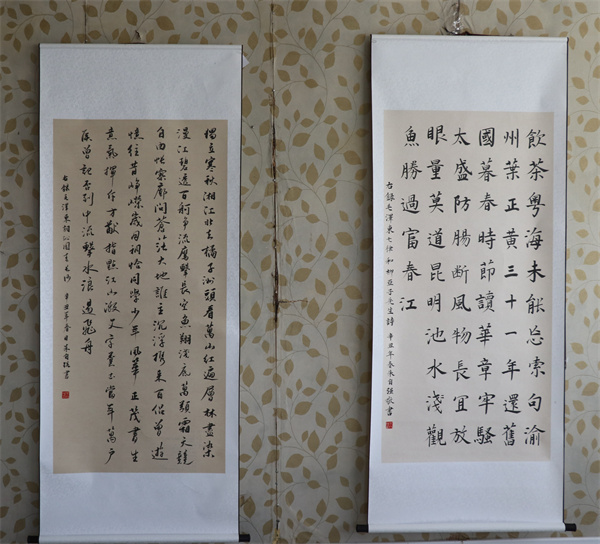 飲茶粵海未能忘索句渝
州葉正黃三十一年還舊
國暮春時節讀華章牢騷
太盛防腸斷風物長宜放
眼量莫道昆明池水淺觀
魚勝過富春江
右錄毛澤東七律和柳亞子先生詩 辛丑年春朱自强敬書
獨立寒秋湘江北去橘子洲頭看萬山紅遍層林盡染
漫江碧透百舸爭流鷹擊長空魚翔淺底萬類霜天競
自由悵寥廓問蒼茫大地誰主沉浮携來百侶曾遊
憶往昔崢嶸歲月稠恰同學少年風華正茂書生
意氣揮斥方遒指點江山激文字糞土當年萬户
侯曾記否到中流擊水浪遏飛舟
右錄毛澤東詞沁園春長沙 辛丑年春日朱自强書